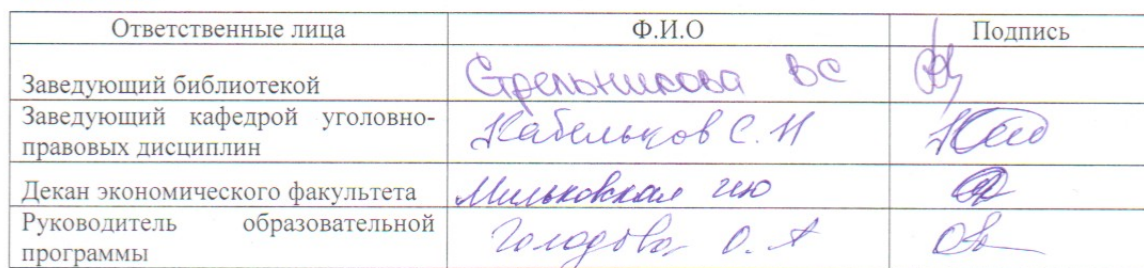 Ответственные лица Ф.И.О Подпись
Заведующий библиотекой Стрельникова ВС
Заведующий кафедрой уголовно-
правовых дисциплин Кабельков С.Н
Декан экономического факультета Мильковская
Руководитель образовательной
программы О.А